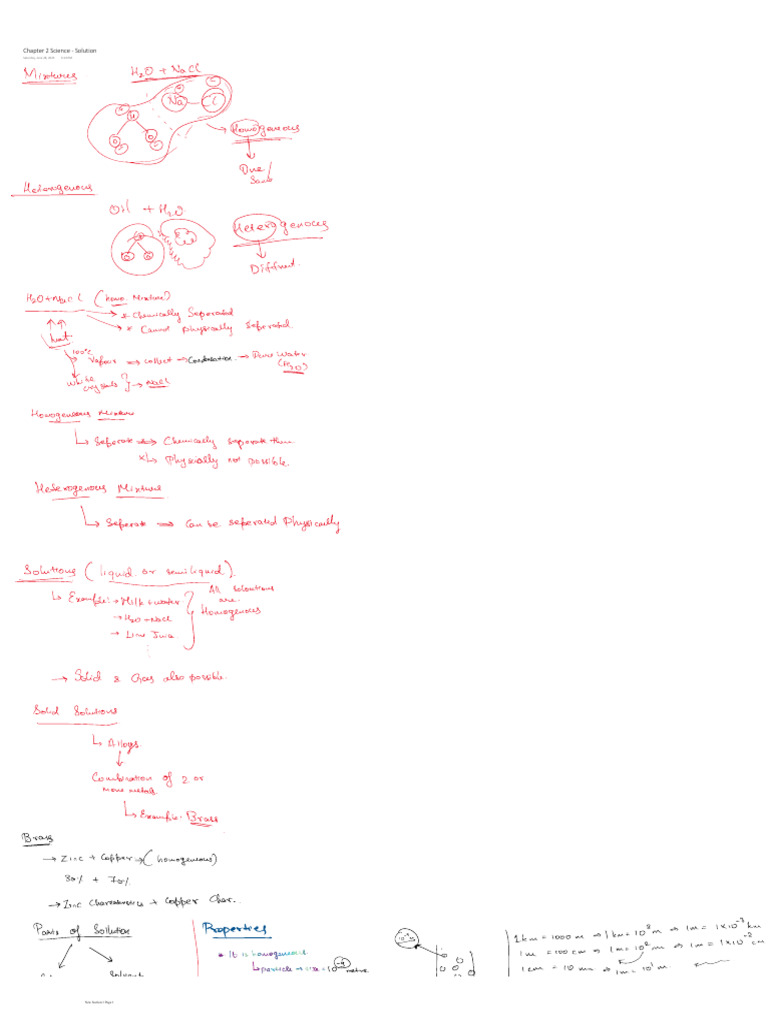 Chapter 2 Science - Solution
Mixtures
H2O + NaCl
Na
Cl
Homogeneous
One/
Same
Heterogenous
OH + H2O
Heterogenous
Different
H2O+NaCl (homo. Mixture)
* Chemically Seperated
* Cannot physically Seperated.
heat
100°C
Vapour → collect → Condensation → Pure Water
(H2O)
White
crystals } → NaCl
Homogenous Mixture
Seperate → Chemically seperate
x Physically not possible.
Heterogenous Mixture
Seperate → Can be seperated Physically
Solutions (liquid or semiliquid).
Example: → Milk + water
→ H2O + NaCl
→ Lime Juice
All solutions
are
Homogenous
→ Solid & Gas also possible.
Solid Solutions
Alloys
Combination of 2 or
more metals
Example: Brass
Brass
→ Zinc + Copper → (homogeneous)
30% + 70%
→ Zinc Charecterstics + Copper Char.
Parts of Sollution
Solvent
Properties
* It is homogeneous
particle size
1 km = 1000 m ⇒ 1 km = 10³ m ⇒ 1 m = 1×10⁻³ km
1 m = 100 cm ⇒ 1 m = 10² m ⇒ 1 m = 1×10⁻² cm
1 cm = 10 mm ⇒ 1 m = 10¹ m